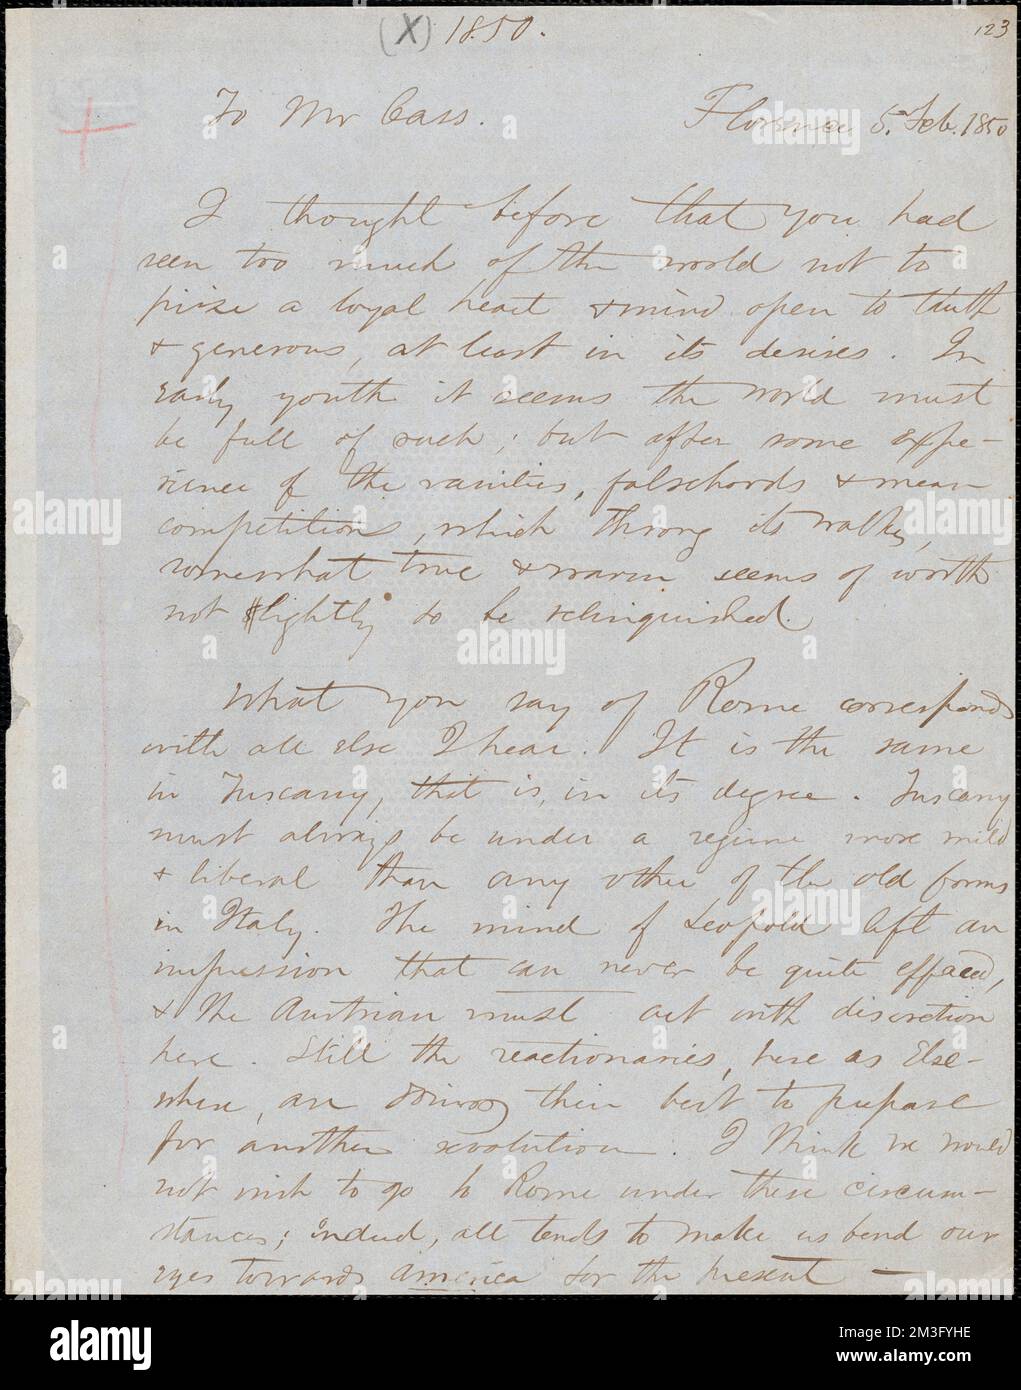 (X) 1850.
123
To Mr Cass. Florence 5. Feb. 1850
I thought before that you had
seen too much of the world not to
prize a loyal heart & mind open to truth
& generous, at least in its desires. In
early youth it seems the world must
be full of such; but after some expe-
rience of the vanities, falsehoods & mean
competitions, which throng its walks,
somewhat true & warm seems of worth
not slightly to be relinquished.
What you say of Rome corresponds
with all else I hear. It is the same
in Tuscany, that is, in its degree. Tuscany
must always be under a regime more mild
& liberal than any other of the old forms
in Italy. The mind of Leopold left an
impression that can never be quite effaced,
& the Austrian must act with discretion
here. Still the reactionaries, here as else-
where, are doing their best to prepare
for another revolution. I think we would
not wish to go to Rome under these circum-
stances; indeed, all tends to make us bend our
eyes towards America for the present —
alamy
Image ID: 2M3FYHE
www.alamy.com